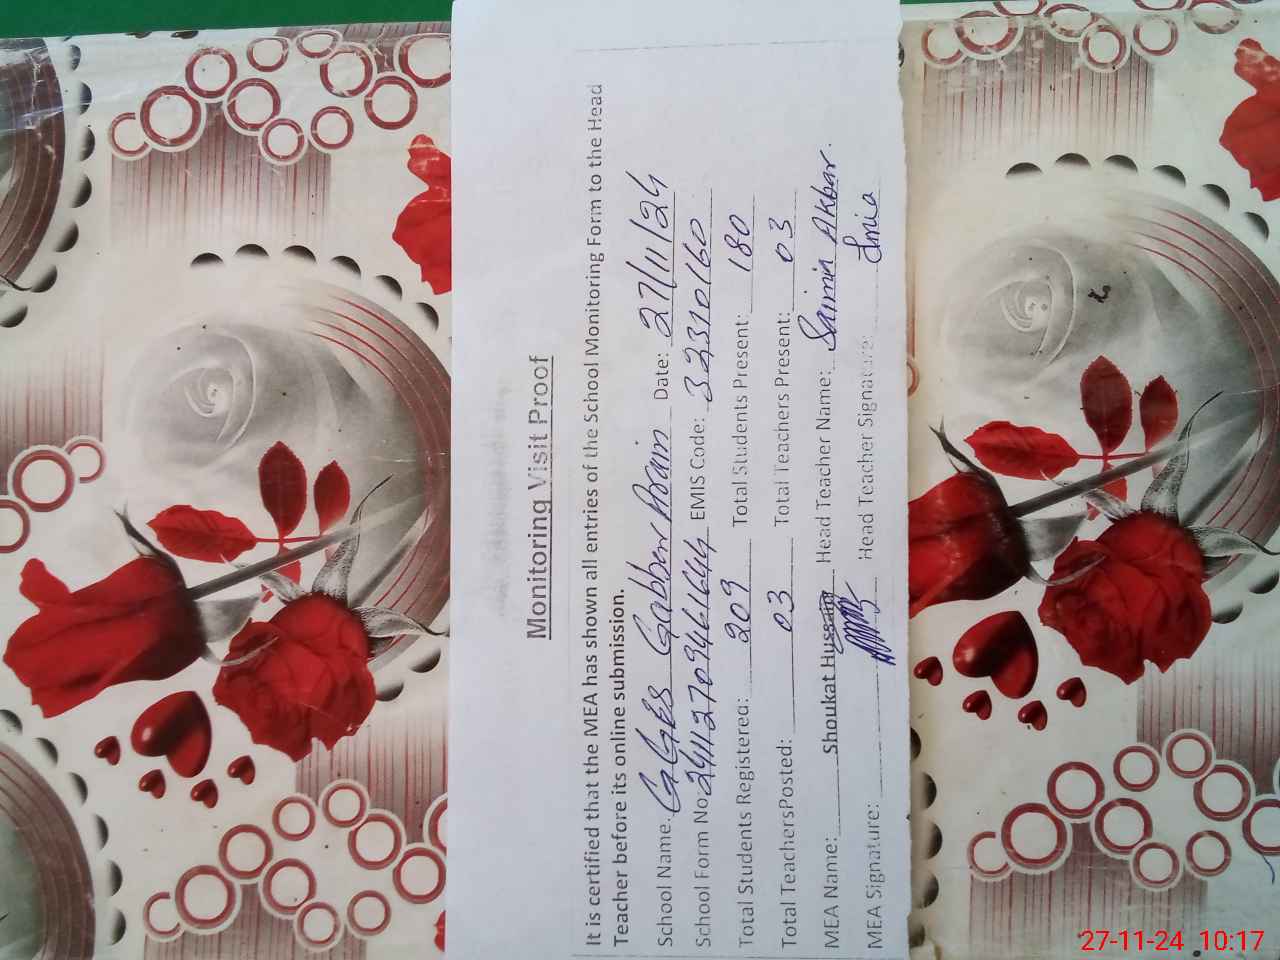 Monitoring Visit Proof
It is certified that the MEA has shown all entries of the School Monitoring Form to the Head
Teacher before its online submission.
School Name: GGES Gabben Arain Date: 27/11/24
School Form No. 24112709461644 EMIS Code: 32310160
Total Students Registered: 209 Total Students Present: 180
Total TeachersPosted: 03 Total Teachers Present: 03
MEA Name: Shoukat Hussain Head Teacher Name: Saima Akbar.
MEA Signature: Head Teacher Signature:
27-11-24 10:17